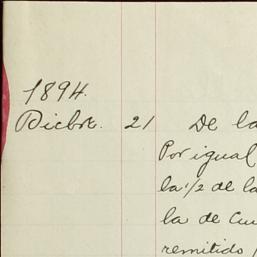 1894.
Dicbre. 21 De la
Por igual
la 1/2 de la
la de
remitido